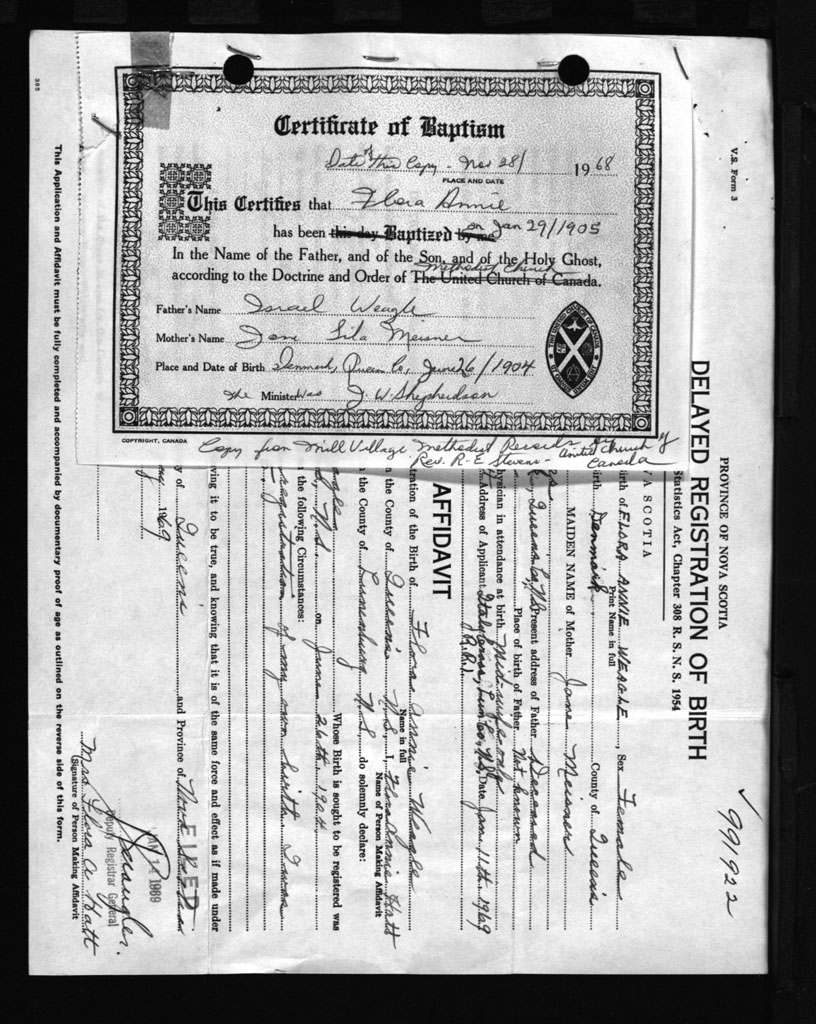 Certificate of Baptism
Date of this Copy - Nov 28/ 1968
PLACE AND DATE
This Certifies that Flora Annie
has been this day Baptized by me on Jan 29/1905
In the Name of the Father, and of the Son, and of the Holy Ghost,
Methodist Church
according to the Doctrine and Order of The United Church of Canada.
Father's Name Israel Weagle
Mother's Name Jane Lila Meisner
Place and Date of Birth Denmark, Queens Co, June 26/1904
the Minister was J. W. Shepherdson
COPYRIGHT, CANADA
Copy from Mill Village Methodist Records by
Rev. R. E. Stevens - United Church of
Canada
V.S. Form 3
991922
PROVINCE OF NOVA SCOTIA
DELAYED REGISTRATION OF BIRTH
Statistics Act, Chapter 308 R. S. N. S. 1954
A SCOTIA
Birth of FLORA ANNIE WEAGLE, Sex Female
Print Name in full
Birth Denmark County of Queens
MAIDEN NAME of Mother Jane Meisner
Queens Co, N.S. Present address of Father Deceased
Place of birth of Father Not known
hysician in attendance at birth Mid-wife only
Address of Applicant Italy Cross, Lun. Co., N.S. Date Jan. 11th. 1969
R.R.1.
AFFIDAVIT
ration of the Birth of Flora Annie Weagle
Name in full
the County of Queens N.S., I, Flora Annie Hatt
Name of Person Making Affidavit
the County of Lunenburg N.S., do solemnly declare:
eagle Whose Birth is sought to be registered was
N.S. on June 26th. 1904.
the following Circumstances:
registration of my own birth
ving it to be true, and knowing that it is of the same force and effect as if made under
ty of Queens and Province of Nova Scotia
1969
JAN 14 1969
Deputy Registrar General
Mrs Flora A Hatt
(Signature of Person Making Affidavit
This Application and Affidavit must be fully completed and accompanied by documentary proof of age as outlined on the reverse side of this form.